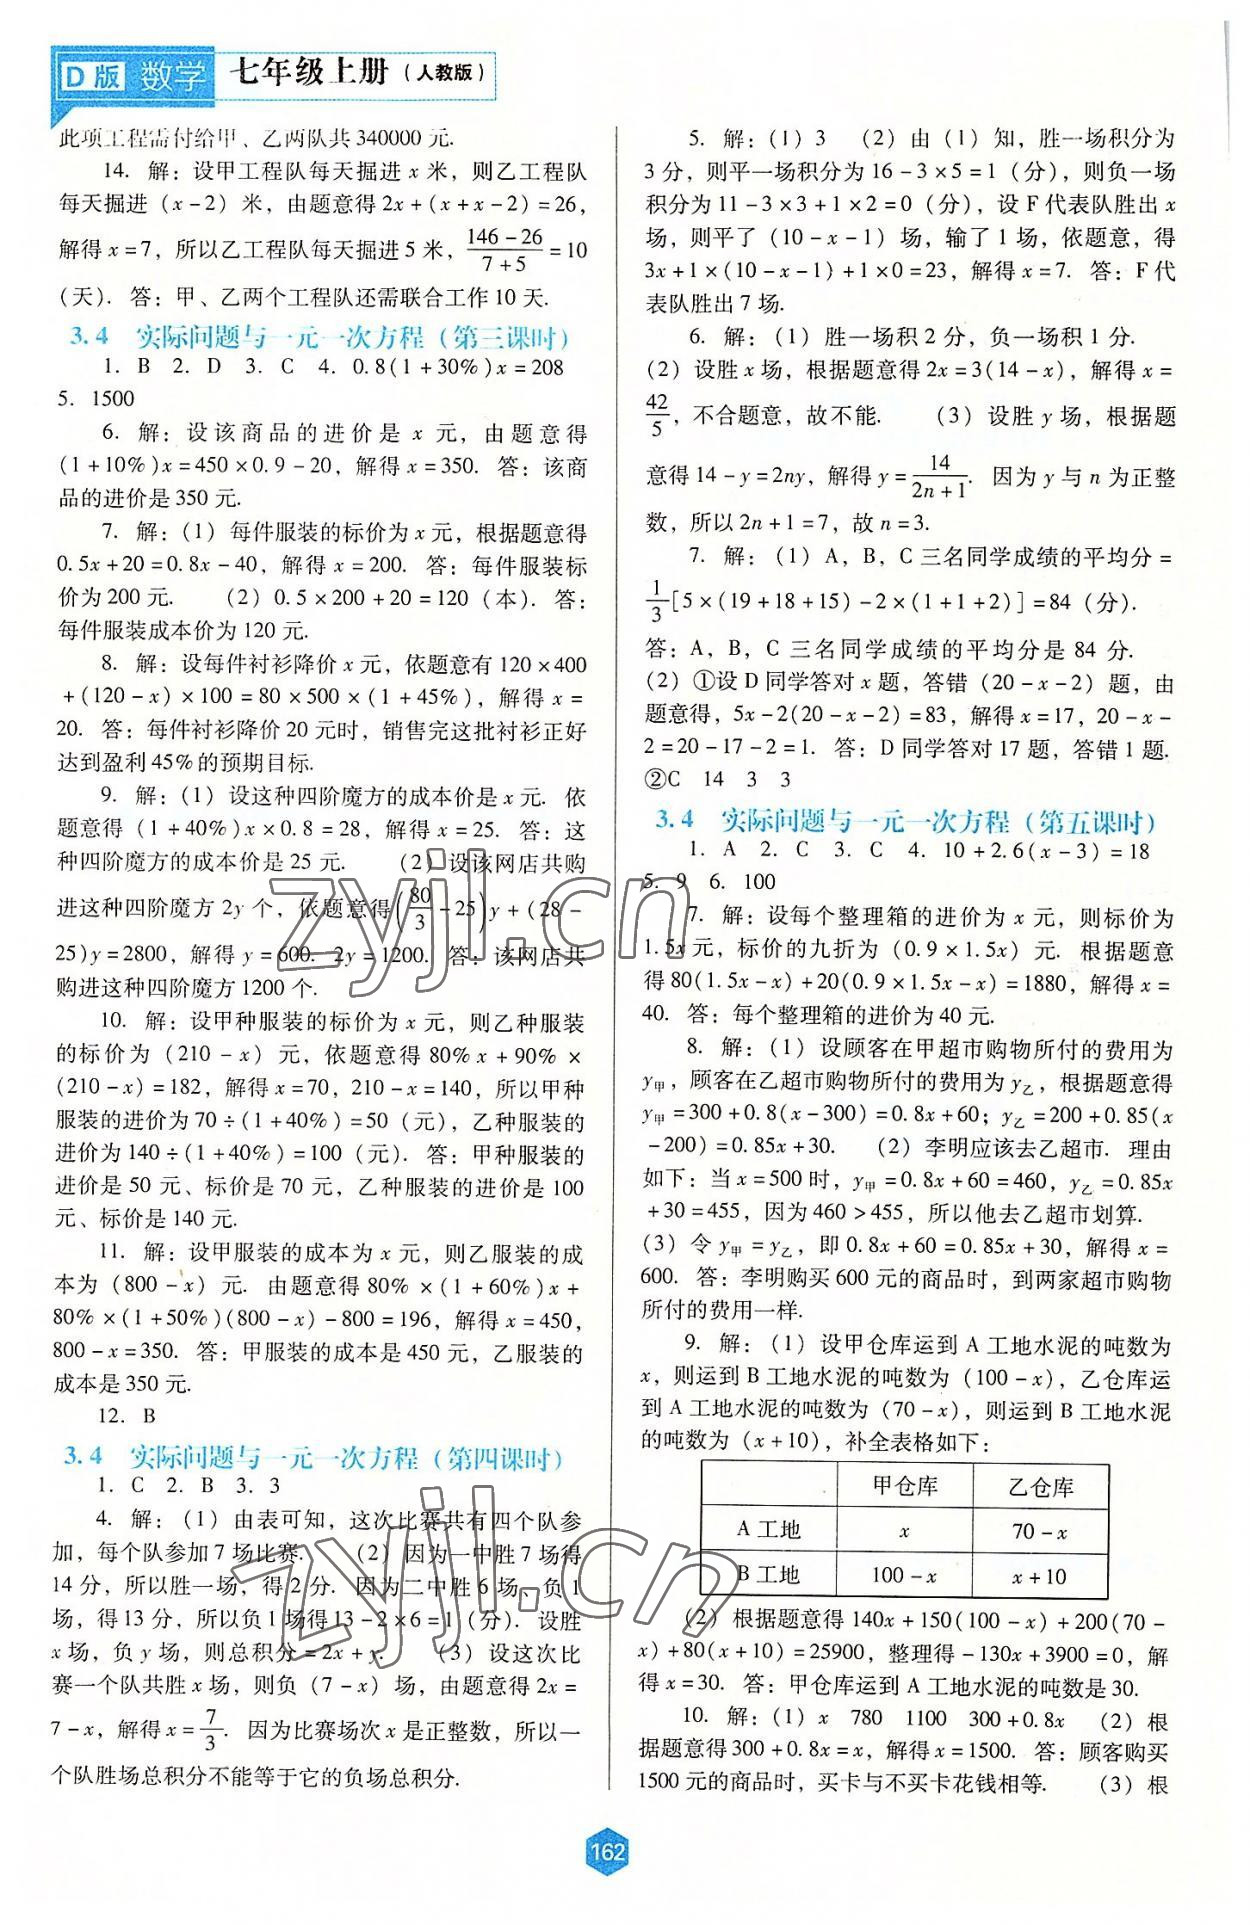 D版 数学 七年级上册（人教版）
此项工程需付给甲、乙两队共 340000 元.
14. 解：设甲工程队每天掘进 x 米，则乙工程队
每天掘进（x－2）米，由题意得 2x＋(x＋x－2)＝26，
解得 x＝7，所以乙工程队每天掘进 5 米，(146－26)/(7＋5)＝10
（天）. 答：甲、乙两个工程队还需联合工作 10 天.
3.4 实际问题与一元一次方程（第三课时）
1. B 2. D 3. C 4. 0.8(1＋30%)x＝208
5. 1500
6. 解：设该商品的进价是 x 元，由题意得
(1＋10%)x＝450×0.9－20，解得 x＝350. 答：该商
品的进价是 350 元.
7. 解：(1) 每件服装的标价为 x 元，根据题意得
0.5x＋20＝0.8x－40，解得 x＝200. 答：每件服装标
价为 200 元. (2) 0.5×200＋20＝120（本）. 答：
每件服装成本价为 120 元.
8. 解：设每件衬衫降价 x 元，依题意有 120×400
＋(120－x)×100＝80×500×(1＋45%)，解得 x＝
20. 答：每件衬衫降价 20 元时，销售完这批衬衫正好
达到盈利 45% 的预期目标.
9. 解：(1) 设这种四阶魔方的成本价是 x 元. 依
题意得（1＋40%)x×0.8＝28，解得 x＝25. 答：这
种四阶魔方的成本价是 25 元. (2) 设该网店共购
进这种四阶魔方 2y 个，依题意得(80/3－25)y＋(28－
25)y＝2800，解得 y＝600. 2y＝1200. 答：该网店共
购进这种四阶魔方 1200 个.
10. 解：设甲种服装的标价为 x 元，则乙种服装
的标价为（210－x）元，依题意得 80%x＋90%×
(210－x)＝182，解得 x＝70，210－x＝140，所以甲种
服装的进价为 70÷(1＋40%)＝50（元），乙种服装的
进价为 140÷(1＋40%)＝100（元）. 答：甲种服装的
进价是 50 元、标价是 70 元，乙种服装的进价是 100
元、标价是 140 元.
11. 解：设甲服装的成本为 x 元，则乙服装的成
本为（800－x）元. 由题意得 80%×(1＋60%)x＋
80%×(1＋50%)(800－x)－800＝196，解得 x＝450，
800－x＝350. 答：甲服装的成本是 450 元，乙服装的
成本是 350 元.
12. B
3.4 实际问题与一元一次方程（第四课时）
1. C 2. B 3. 3
4. 解：(1) 由表可知，这次比赛共有四个队参
加，每个队参加 7 场比赛. (2) 因为一中胜 7 场得
14 分，所以胜一场，得 2 分. 因为二中胜 6 场、负 1
场，得 13 分，所以负 1 场得 13－2×6＝1（分）. 设胜
x 场，负 y 场，则总积分＝2x＋y. (3) 设这次比
赛一个队共胜 x 场，则负（7－x）场，由题意得 2x＝
7－x，解得 x＝7/3. 因为比赛场次 x 是正整数，所以一
个队胜场总积分不能等于它的负场总积分.
5. 解：(1) 3 (2) 由（1）知，胜一场积分为
3 分，则平一场积分为 16－3×5＝1（分），则负一场
积分为 11－3×3＋1×2＝0（分），设 F 代表队胜出 x
场，则平了（10－x－1）场，输了 1 场，依题意，得
3x＋1×(10－x－1)＋1×0＝23，解得 x＝7. 答：F 代
表队胜出 7 场.
6. 解：(1) 胜一场积 2 分，负一场积 1 分.
(2) 设胜 x 场，根据题意得 2x＝3(14－x)，解得 x＝
42/5，不合题意，故不能. (3) 设胜 y 场，根据题
意得 14－y＝2ny，解得 y＝14/(2n＋1). 因为 y 与 n 为正整
数，所以 2n＋1＝7，故 n＝3.
7. 解：(1) A，B，C 三名同学成绩的平均分＝
1/3[5×(19＋18＋15)－2×(1＋1＋2)]＝84（分）.
答：A，B，C 三名同学成绩的平均分是 84 分.
(2) ①设 D 同学答对 x 题，答错（20－x－2）题，由
题意得，5x－2(20－x－2)＝83，解得 x＝17，20－x－
2＝20－17－2＝1. 答：D 同学答对 17 题，答错 1 题.
②C 14 3 3
3.4 实际问题与一元一次方程（第五课时）
1. A 2. C 3. C 4. 10＋2.6(x－3)＝18
5. 9 6. 100
7. 解：设每个整理箱的进价为 x 元，则标价为
1.5x 元，标价的九折为（0.9×1.5x）元. 根据题意
得 80(1.5x－x)＋20(0.9×1.5x－x)＝1880，解得 x＝
40. 答：每个整理箱的进价为 40 元.
8. 解：(1) 设顾客在甲超市购物所付的费用为
y甲，顾客在乙超市购物所付的费用为 y乙，根据题意得
y甲＝300＋0.8(x－300)＝0.8x＋60；y乙＝200＋0.85(x
－200)＝0.85x＋30. (2) 李明应该去乙超市. 理由
如下：当 x＝500 时，y甲＝0.8x＋60＝460，y乙＝0.85x
＋30＝455，因为 460＞455，所以他去乙超市划算.
(3) 令 y甲＝y乙，即 0.8x＋60＝0.85x＋30，解得 x＝
600. 答：李明购买 600 元的商品时，到两家超市购物
所付的费用一样.
9. 解：(1) 设甲仓库运到 A 工地水泥的吨数为
x，则运到 B 工地水泥的吨数为（100－x），乙仓库运
到 A 工地水泥的吨数为（70－x），则运到 B 工地水泥
的吨数为（x＋10），补全表格如下：
甲仓库 乙仓库
A 工地 x 70－x
B 工地 100－x x＋10
(2) 根据题意得 140x＋150(100－x)＋200(70－
x)＋80(x＋10)＝25900，整理得－130x＋3900＝0，解
得 x＝30. 答：甲仓库运到 A 工地水泥的吨数是 30.
10. 解：(1) x 780 1100 300＋0.8x (2) 根
据题意得 300＋0.8x＝x，解得 x＝1500. 答：顾客购买
1500 元的商品时，买卡与不买卡花钱相等. (3) 根
162
zyjl.cn
zyjl.cn